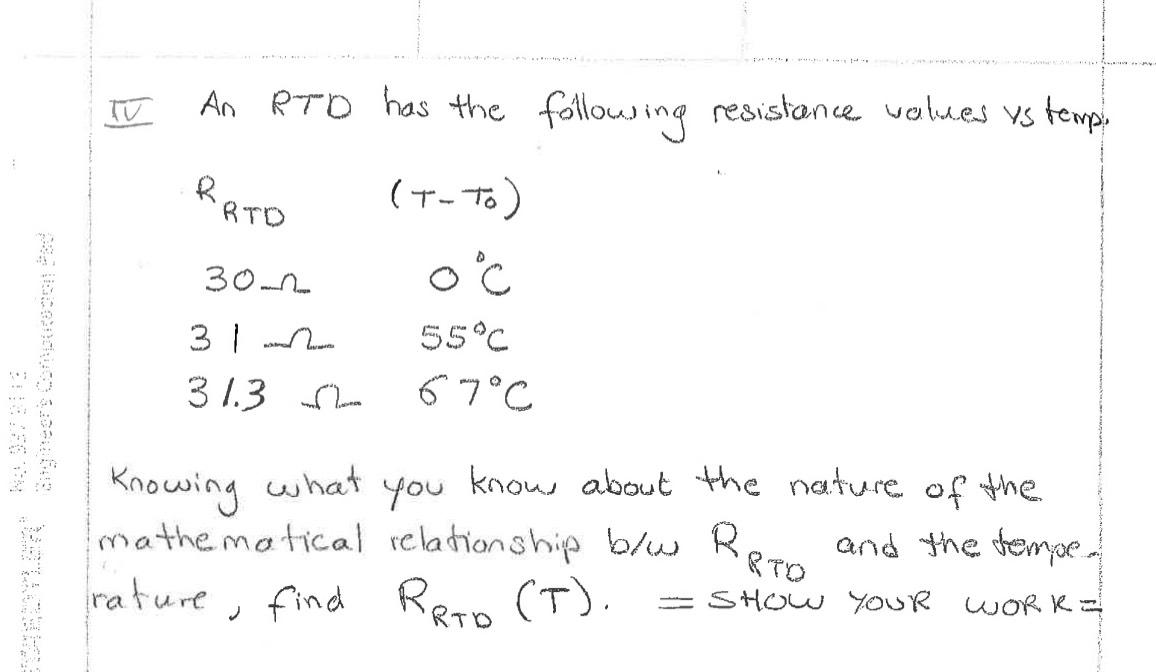 IV An RTD has the following resistance values vs temp.
R RTD (T-To)
30Ω 0°C
31Ω 55°C
31.3 Ω 67°C
Knowing what you know about the nature of the
mathematical relationship b/w R RTD and the tempe-
rature, find R RTD (T). = SHOW YOUR WORK =
Engineer's Computation Pad